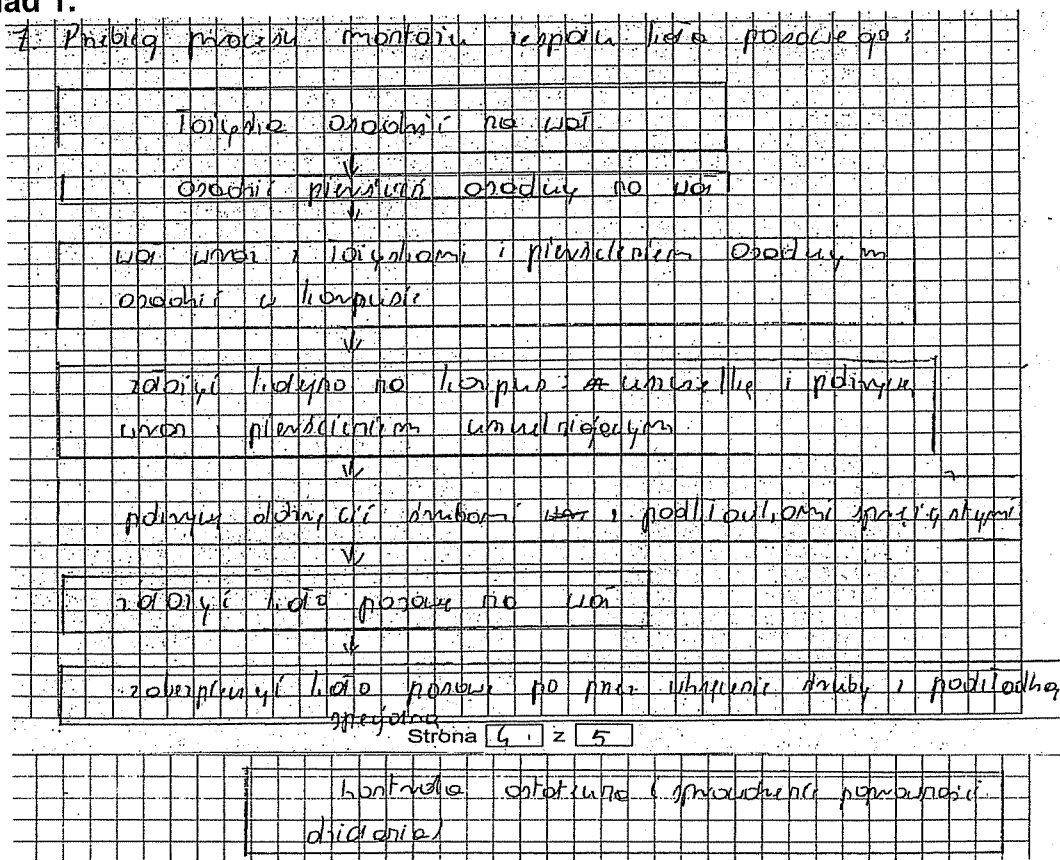 ład 1.
7. Przebieg procesu montażu zespołu koła pasowego:
Łożyska osadzić na wał
osadzić pierścień osadczy na wał
wał wraz z łożyskami i pierścieniem osadczym
osadzić w korpusie
założyć kolejno na korpus: uszczelkę i pokrywę
wraz z pierścieniem uszczelniającym
pokrywę dokręcić śrubami z podkładkami sprężystymi
założyć koło pasowe na wał
zabezpieczyć koło pasowe po przez wkręcenie śruby z podkładką
specjalną
Strona 4 z 5
kontrola ostateczna (sprawdzenie poprawności
działania)